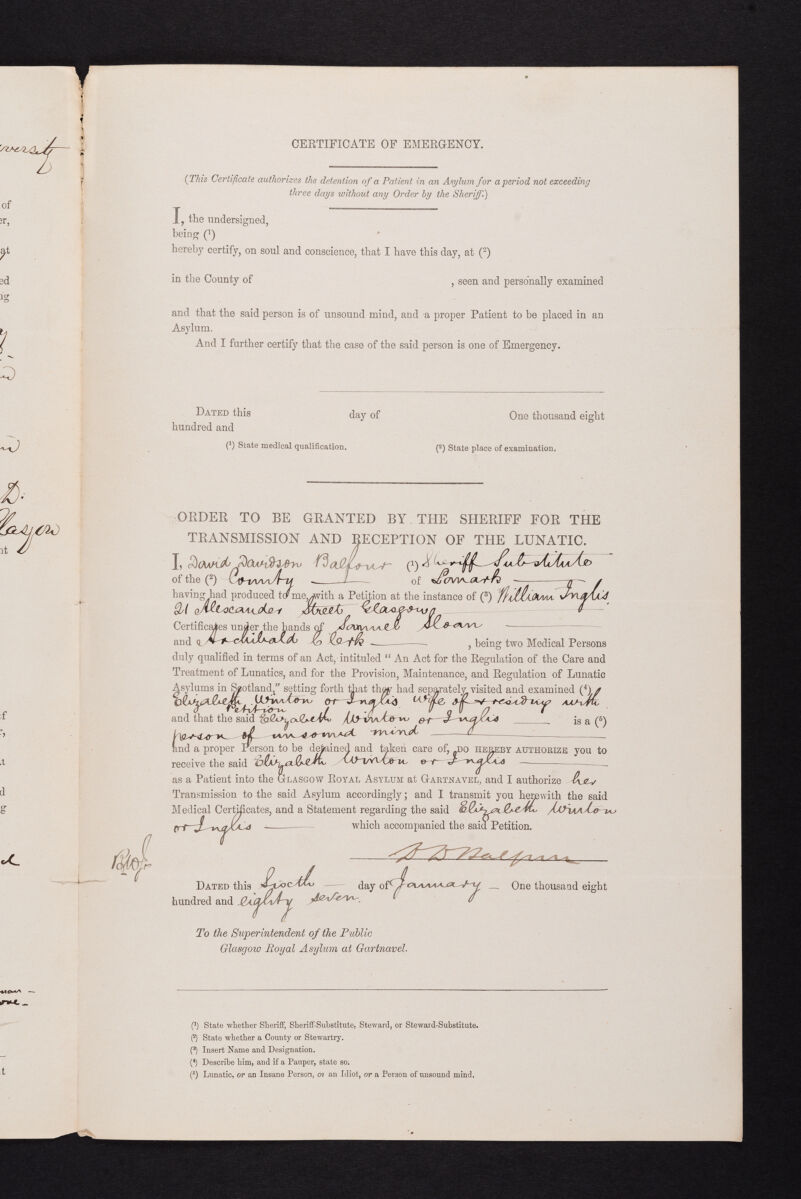 CERTIFICATE OF EMERGENCY.
(This Certificate authorizes the detention of a Patient in an Asylum for a period not exceeding
three days without any Order by the Sheriff.)
I, the undersigned,
being (1)
hereby certify, on soul and conscience, that I have this day, at (2)
in the County of , seen and personally examined
and that the said person is of unsound mind, and a proper Patient to be placed in an
Asylum.
And I further certify that the case of the said person is one of Emergency.
DATED this day of One thousand eight
hundred and
(1) State medical qualification. (2) State place of examination.
ORDER TO BE GRANTED BY THE SHERIFF FOR THE
TRANSMISSION AND RECEPTION OF THE LUNATIC.
I, David Davidson Balfour (1) Sheriff Substitute
of the (2) County of Lanark
having had produced to me, with a Petition at the instance of (3) William Inglis
21 Alexander Street Glasgow
Certificates under the hands of Samuel Sloan
and Archibald Clerk , being two Medical Persons
duly qualified in terms of an Act, intituled “ An Act for the Regulation of the Care and
Treatment of Lunatics, and for the Provision, Maintenance, and Regulation of Lunatic
Asylums in Scotland,” setting forth that they had separately visited and examined (4)
Elizabeth Winton or Inglis wife of & residing with
Petition
and that the said Elizabeth Winton or Inglis is a (5)
person of unsound mind
and a proper Person to be detained and taken care of, DO HEREBY AUTHORIZE you to
receive the said Elizabeth Winton or Inglis
as a Patient into the GLASGOW ROYAL ASYLUM at GARTNAVEL, and I authorize her
Transmission to the said Asylum accordingly; and I transmit you herewith the said
Medical Certificates, and a Statement regarding the said Elizabeth Winton
or Inglis which accompanied the said Petition.
D D Balfour
DATED this Sixth day of January One thousand eight
hundred and eighty seven.
To the Superintendent of the Public
Glasgow Royal Asylum at Gartnavel.
(1) State whether Sheriff, Sheriff-Substitute, Steward, or Steward-Substitute.
(2) State whether a County or Stewartry.
(3) Insert Name and Designation.
(4) Describe him, and if a Pauper, state so.
(5) Lunatic, or an Insane Person, or an Idiot, or a Person of unsound mind.